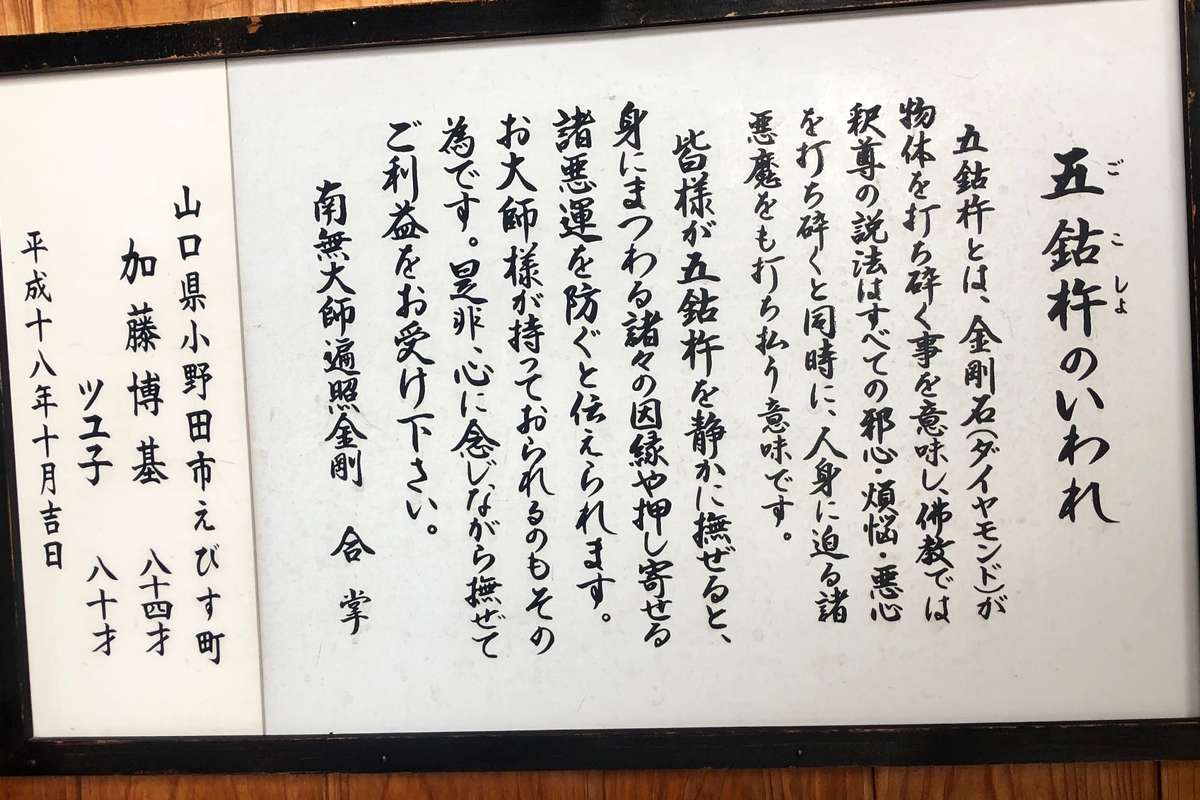 五鈷杵のいわれ
ごこしよ
五鈷杵とは、金剛石(ダイヤモンド)が
物体を打ち砕く事を意味し、佛教では
釈尊の説法はすべての邪心・煩悩・悪心
を打ち砕くと同時に、人身に迫る諸
悪魔をも打ち払う意味です。
皆様が五鈷杵を静かに撫ぜると、
身にまつわる諸々の因縁や押し寄せる
諸悪運を防ぐと伝えられます。
お大師様が持っておられるのもその
為です。是非、心に念じながら撫ぜて
ご利益をお受け下さい。
南無大師遍照金剛 合掌
山口県小野田市えびす町
加藤博基 八十四才
ツユ子 八十才
平成十八年十月吉日